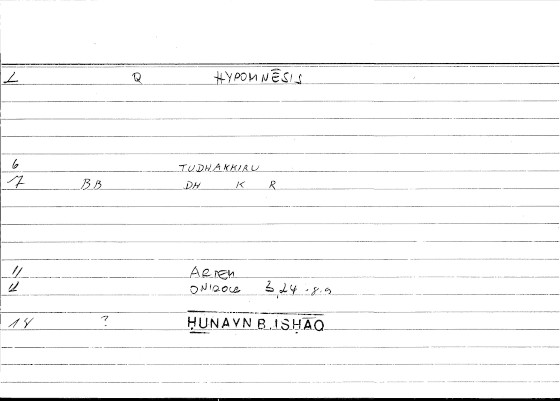 1 Q HYPOMNĒSIS
6 TUDHAKKIRU
7 BB DH K R
11 ARTEM
12 ONIROCR 3,24 -8.9
14 ? ḤUNAYN B. ISḤĀQ